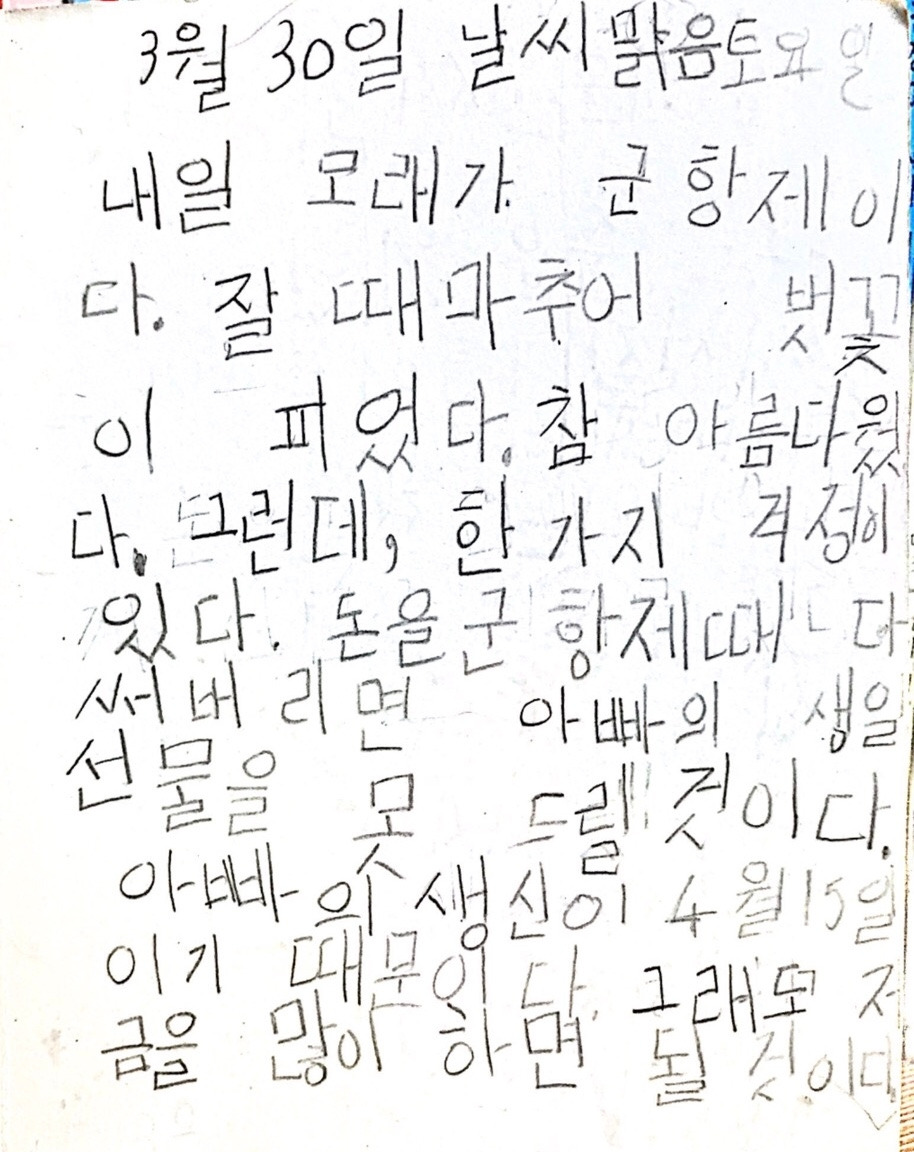 3월 30일 날씨맑음토요일
내일 모래가 군항제이
다. 잘 때마추어 벗꽃
이 피었다. 참 아름다웠
다. 그런데, 한가지 걱정이
있다. 돈을 군항제때 다
써버리면 아빠의 생일
선물을 못 드릴 것이다.
아빠의 생신이 4월15일
이기 때문이다. 그래도 저
금을 많이 하면 될 것이다